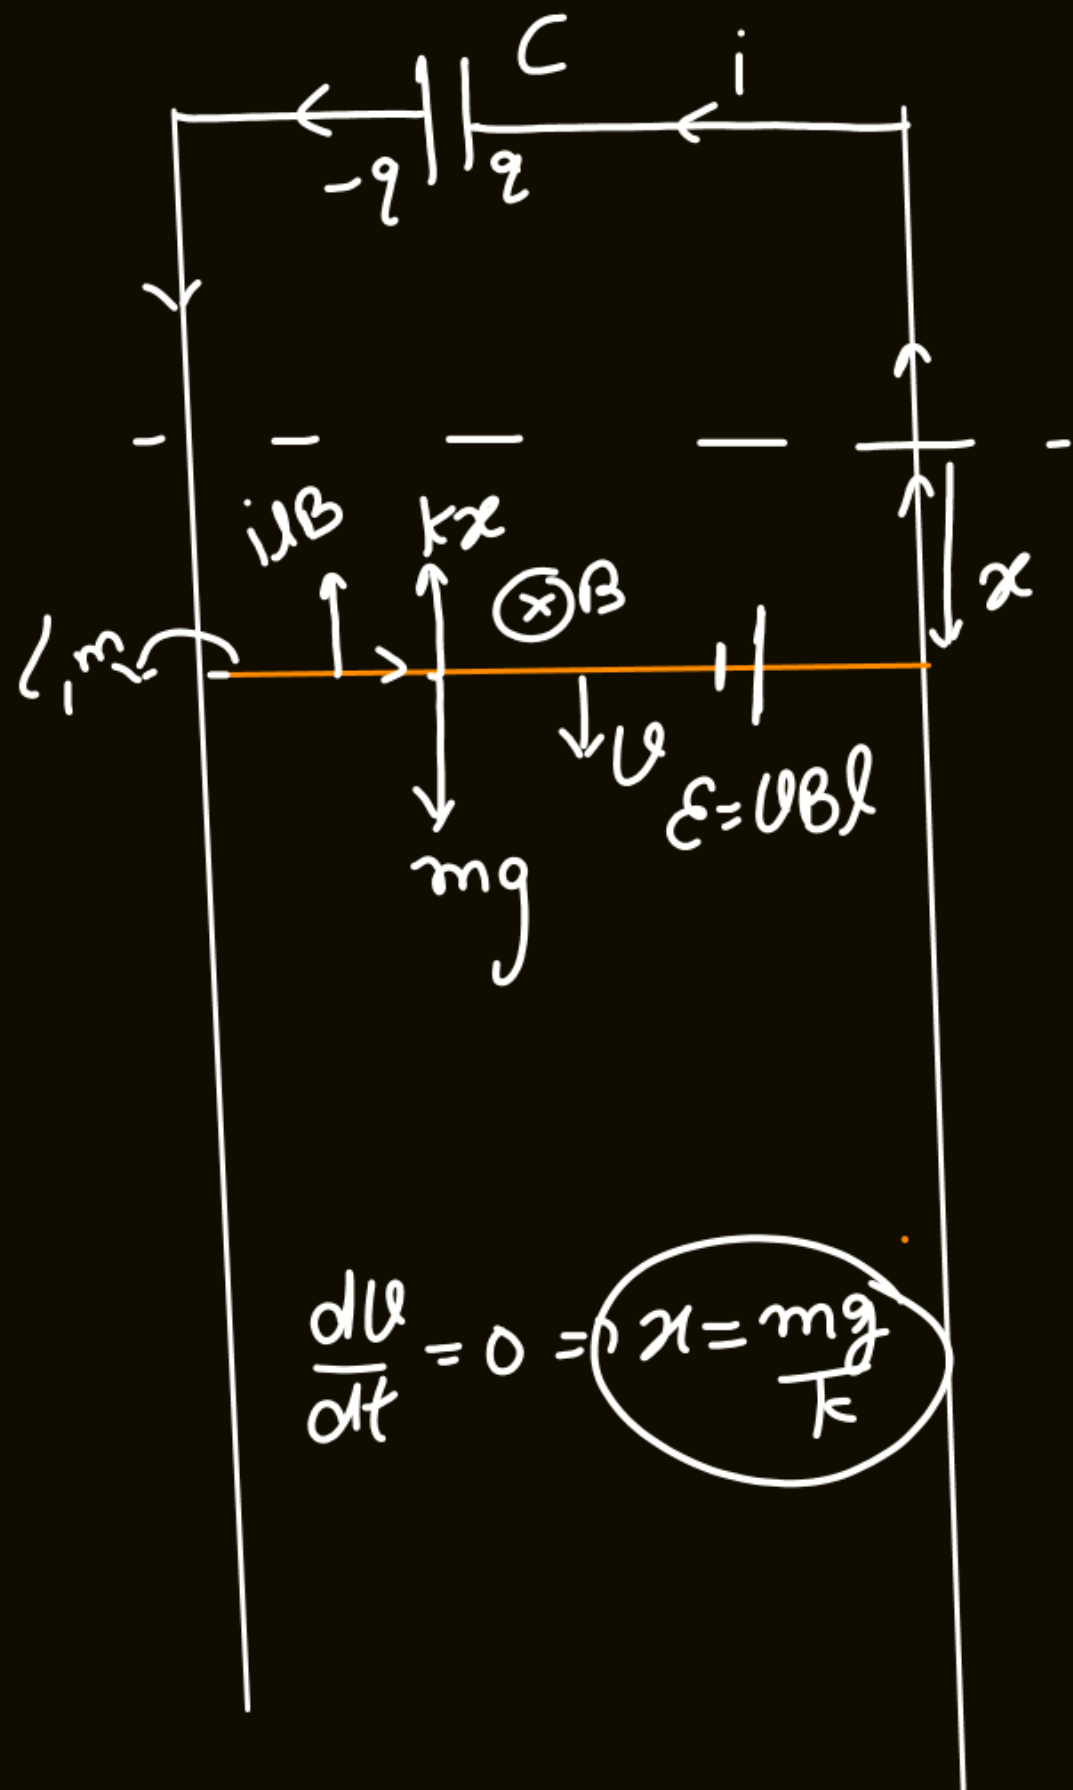 C
i
-q
q
ilB
kx
⊗B
x
l, m
v
ε=vBl
mg
dv/dt = 0 ⇒ x = mg/k